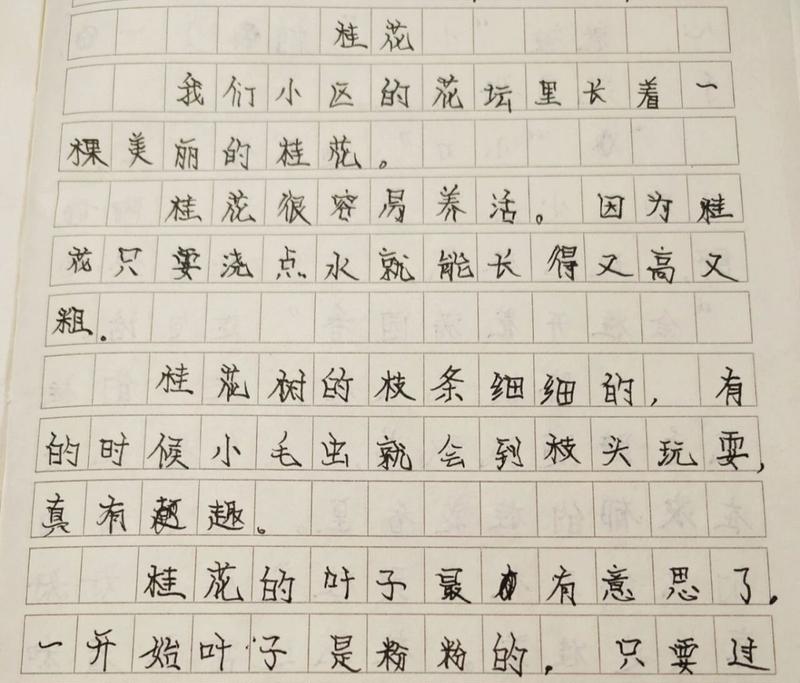 桂花
我们小区的花坛里长着一
棵美丽的桂花。
桂花很容易养活。因为桂
花只要浇点水就能长得又高又
粗.
桂花树的枝条细细的,有
的时候小毛虫就会到枝头玩耍,
真有趣。
桂花的叶子最有意思了.
一开始叶子是粉粉的.只要过